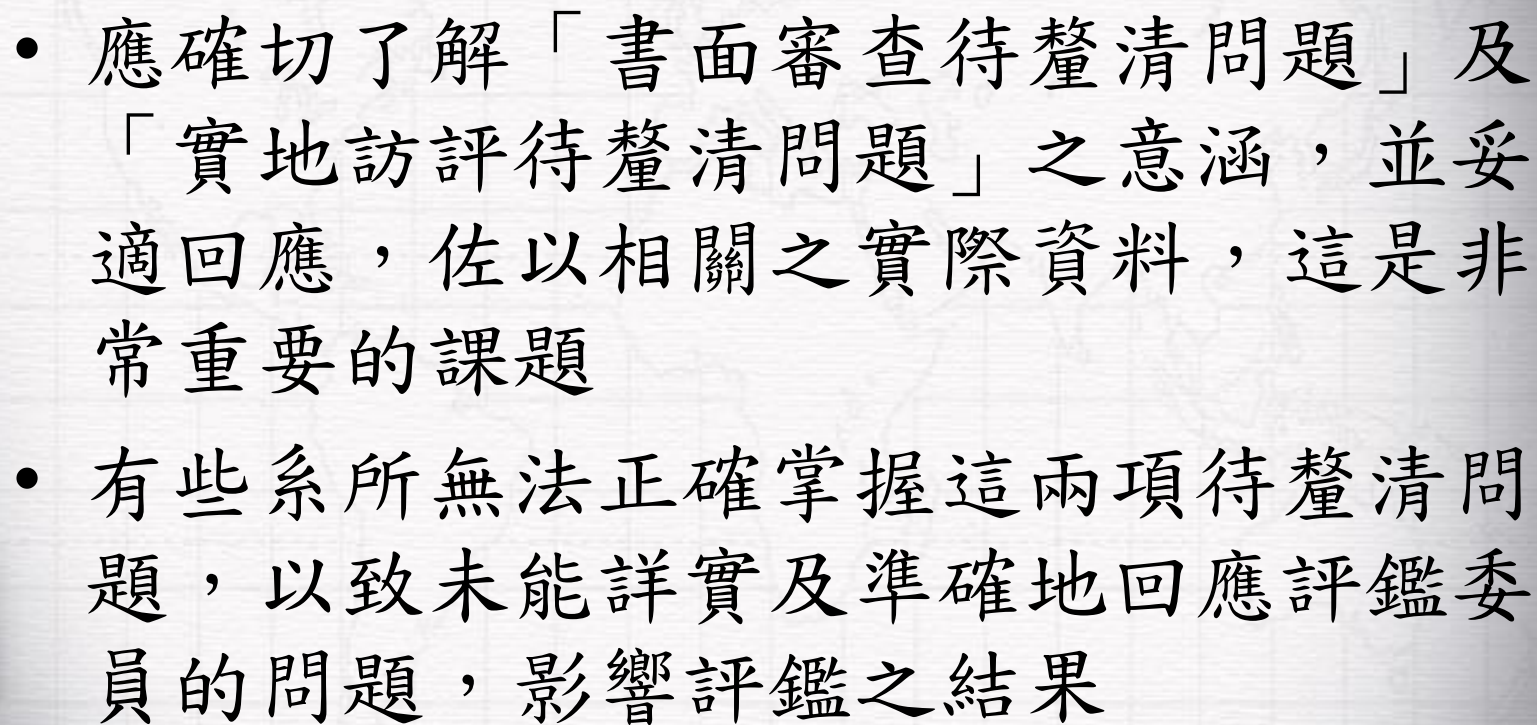 • 應確切了解「書面審查待釐清問題」及
「實地訪評待釐清問題」之意涵，並妥
適回應，佐以相關之實際資料，這是非
常重要的課題
• 有些系所無法正確掌握這兩項待釐清問
題，以致未能詳實及準確地回應評鑑委
員的問題，影響評鑑之結果